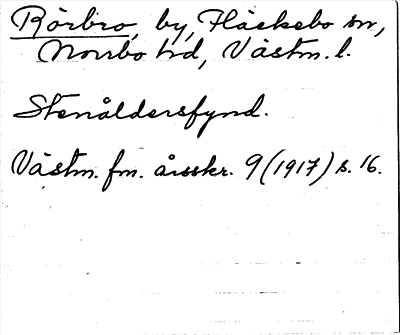 Rörbro, by, Fläckebo sn,
Norrbo hd, Västm. l.
Stenåldersfynd.
Västm. fm. årsskr. 9 (1917) s. 16.